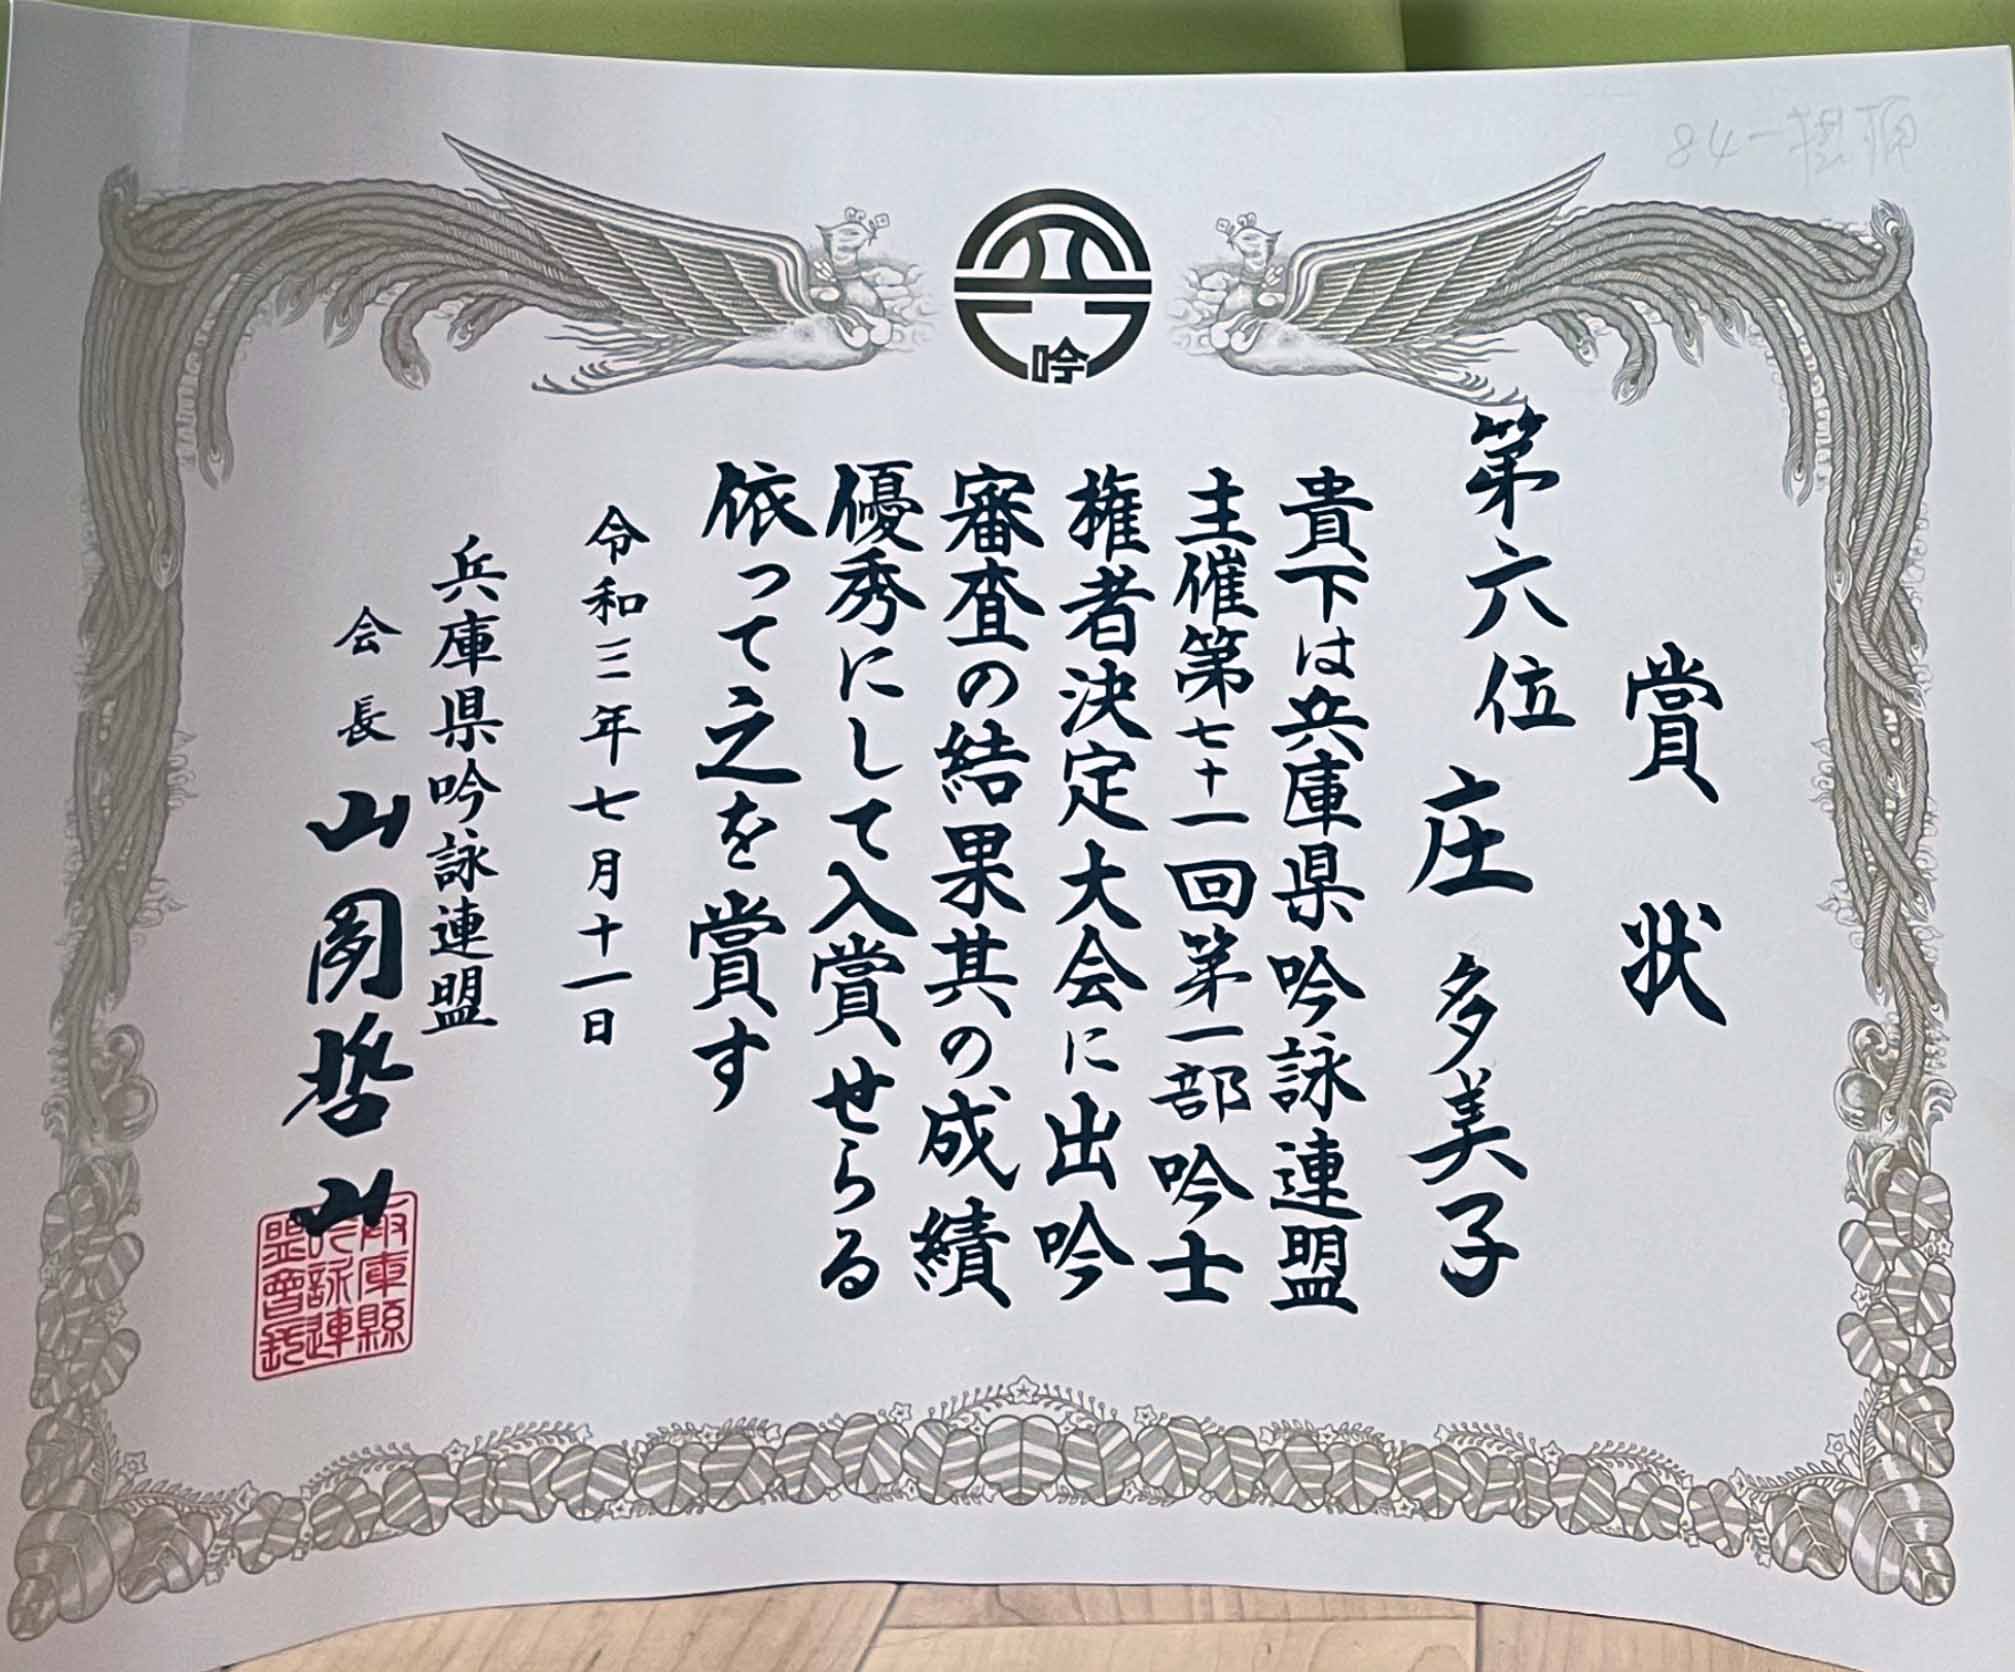 賞状
第六位 庄 多美子
貴下は兵庫県吟詠連盟
主催第七十一回第一部吟士
権者決定大会に出吟
審査の結果其の成績
優秀にして入賞せらる
依って之を賞す
令和三年七月十一日
兵庫県吟詠連盟
会長 山岡哲山
吟